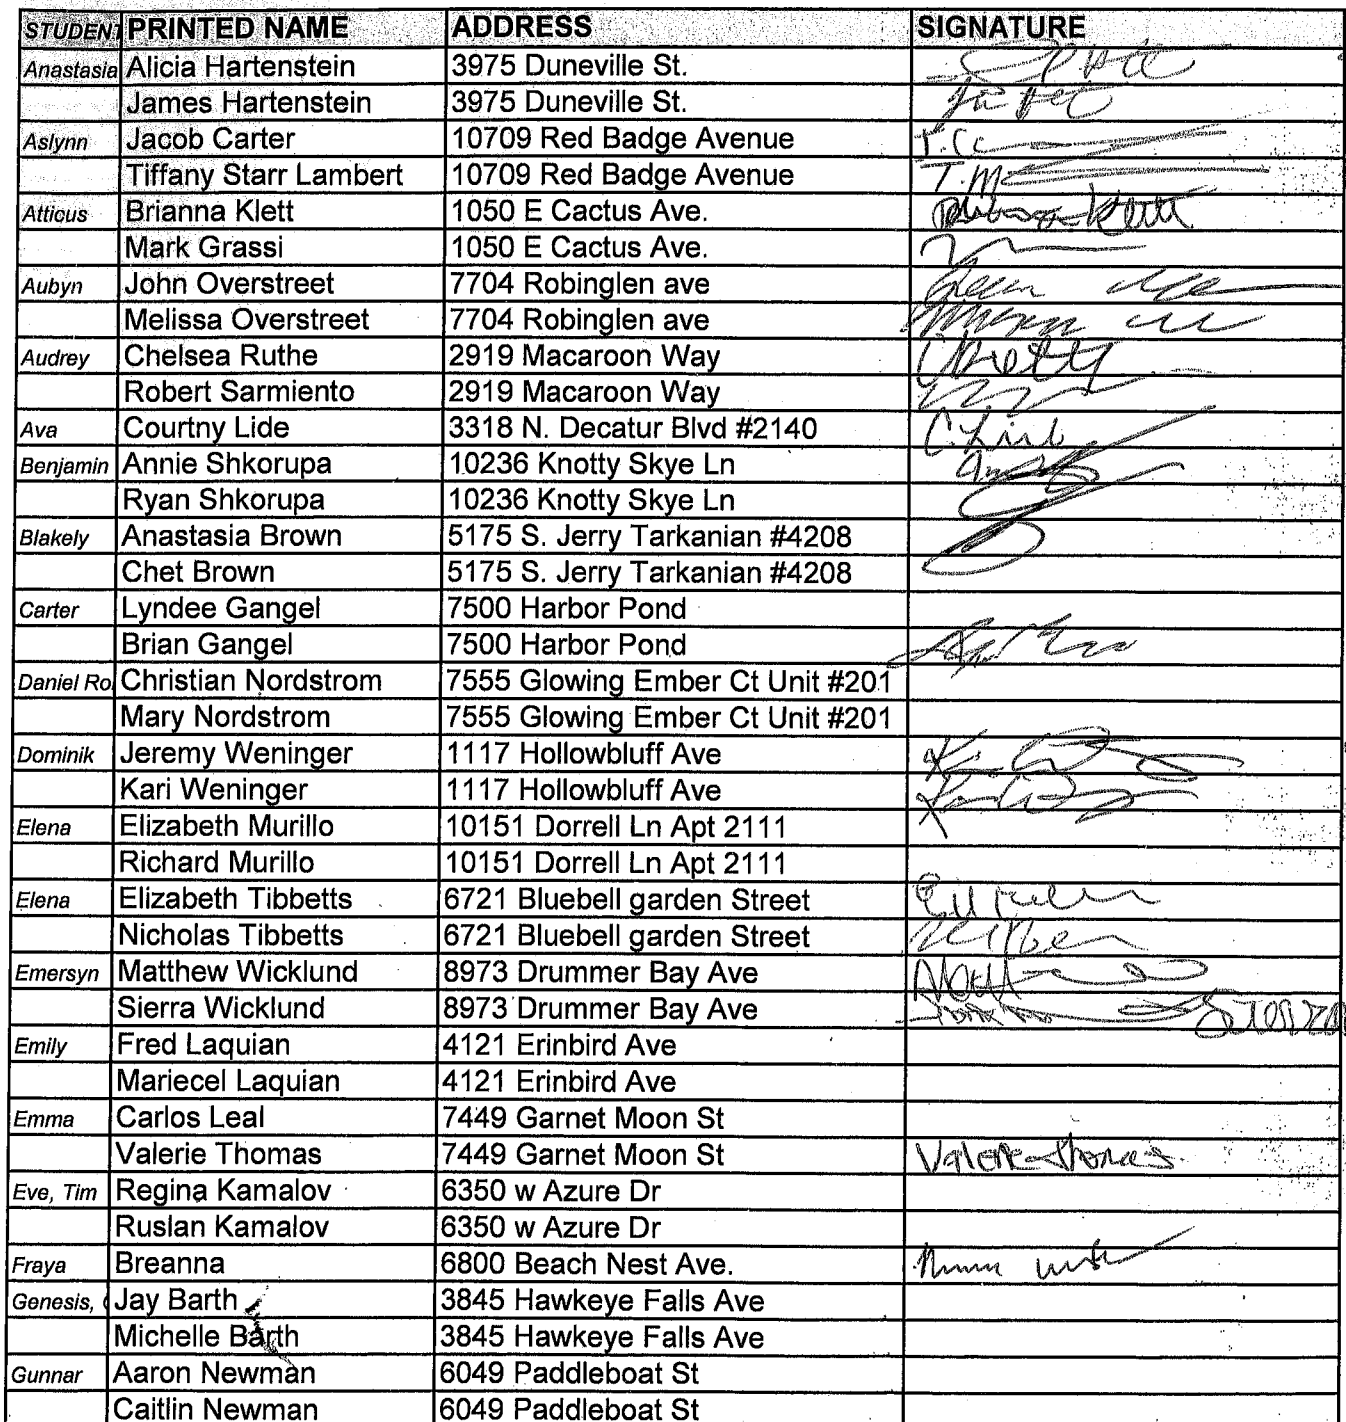 STUDENT PRINTED NAME ADDRESS SIGNATURE
Anastasia Alicia Hartenstein 3975 Duneville St.
James Hartenstein 3975 Duneville St.
Aslynn Jacob Carter 10709 Red Badge Avenue
Tiffany Starr Lambert 10709 Red Badge Avenue
Atticus Brianna Klett 1050 E Cactus Ave. Klett
Mark Grassi 1050 E Cactus Ave.
Aubyn John Overstreet 7704 Robinglen ave
Melissa Overstreet 7704 Robinglen ave
Audrey Chelsea Ruthe 2919 Macaroon Way
Robert Sarmiento 2919 Macaroon Way
Ava Courtny Lide 3318 N. Decatur Blvd #2140
Benjamin Annie Shkorupa 10236 Knotty Skye Ln
Ryan Shkorupa 10236 Knotty Skye Ln
Blakely Anastasia Brown 5175 S. Jerry Tarkanian #4208
Chet Brown 5175 S. Jerry Tarkanian #4208
Carter Lyndee Gangel 7500 Harbor Pond
Brian Gangel 7500 Harbor Pond
Daniel Ro Christian Nordstrom 7555 Glowing Ember Ct Unit #201
Mary Nordstrom 7555 Glowing Ember Ct Unit #201
Dominik Jeremy Weninger 1117 Hollowbluff Ave
Kari Weninger 1117 Hollowbluff Ave
Elena Elizabeth Murillo 10151 Dorrell Ln Apt 2111
Richard Murillo 10151 Dorrell Ln Apt 2111
Elena Elizabeth Tibbetts 6721 Bluebell garden Street
Nicholas Tibbetts 6721 Bluebell garden Street
Emersyn Matthew Wicklund 8973 Drummer Bay Ave
Sierra Wicklund 8973 Drummer Bay Ave
Emily Fred Laquian 4121 Erinbird Ave
Mariecel Laquian 4121 Erinbird Ave
Emma Carlos Leal 7449 Garnet Moon St
Valerie Thomas 7449 Garnet Moon St Valerie Thomas
Eve, Tim Regina Kamalov 6350 w Azure Dr
Ruslan Kamalov 6350 w Azure Dr
Fraya Breanna 6800 Beach Nest Ave.
Genesis, Jay Barth 3845 Hawkeye Falls Ave
Michelle Barth 3845 Hawkeye Falls Ave
Gunnar Aaron Newman 6049 Paddleboat St
Caitlin Newman 6049 Paddleboat St